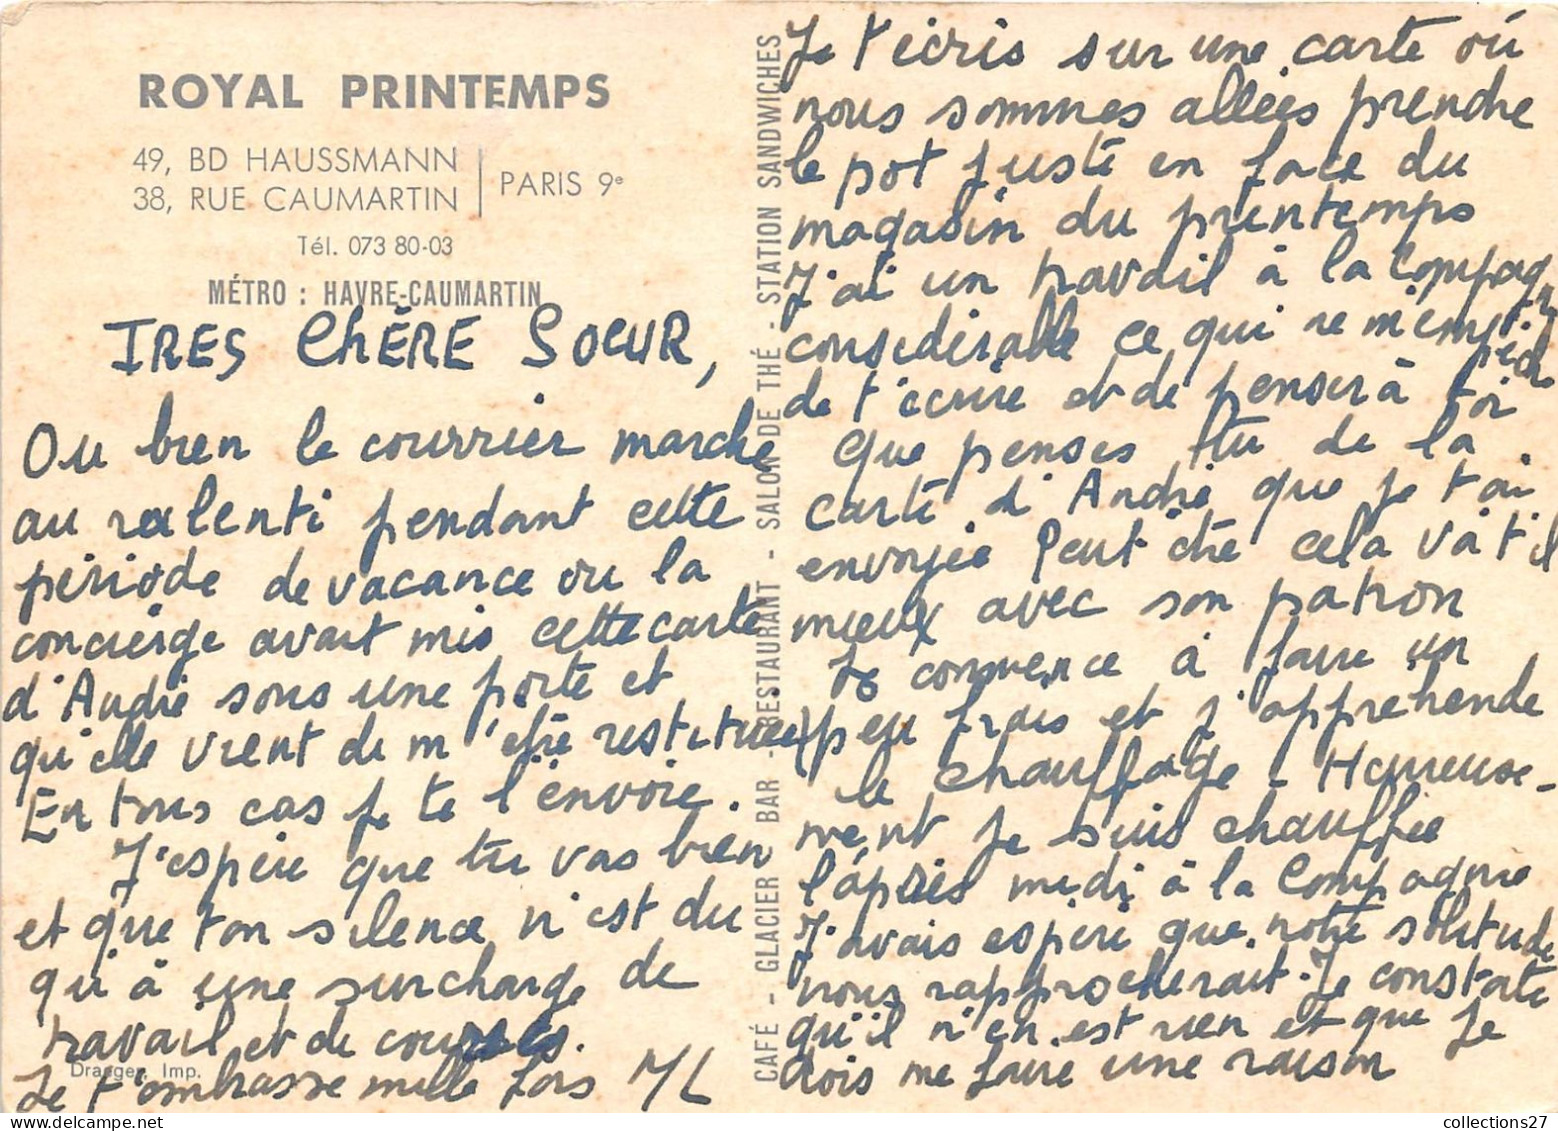 ROYAL PRINTEMPS
49, BD HAUSSMANN
38, RUE CAUMARTIN
PARIS 9e
Tél. 073 80-03
MÉTRO : HAVRE-CAUMARTIN
TRES CHÈRE SOEUR,
Ou bien le courrier marche
au ralenti pendant cette
période de vacance ou la
concierge avait mis cette carte
d'André sous une porte et
qu'elle vient de m'être restituée)
En tous cas je te l'envoie.
J'espère que tu vas bien
et que ton silence n'est du
qu'à une surcharge de
travail et de courses.
Je t'embrasse mille fois ML
Draeger, Imp.
CAFÉ - GLACIER BAR - RESTAURANT - SALON DE THÉ - STATION SANDWICHES
Je t'écris sur une carte où
nous sommes allées prendre
le pot juste en face du
magasin du printemps
J'ai un travail à la Compagnie
considérable ce qui me m'empêche
de t'écrire et de penser à toi
Que penses tu de la
carte d'André que je t'ai
envoyée Peut être cela va t'il
mieux avec son patron
Je commence à faire un
peu frais et j'appréhende
le chauffage - Heureuse-
ment je suis chauffée
l'après midi à la Compagnie
J'avais espéré que notre solitude
nous rapprocherait. Je constate
qu'il n'en est rien et que je
dois me faire une raison
collections27